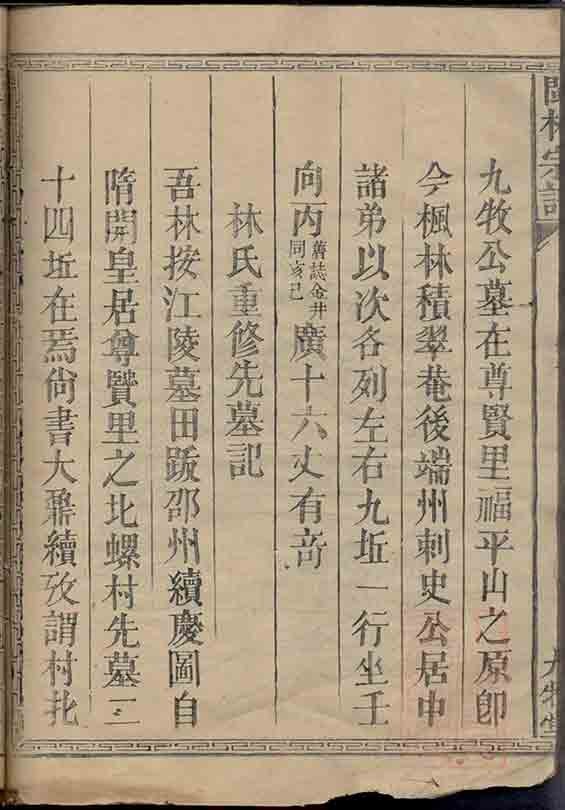 九牧公墓在尊賢里福平山之原卽
今楓林積翠菴後端州刺史公居中
諸弟以次各列左右九坵一行坐壬
向丙舊誌金井同亥己廣十六丈有奇
林氏重修先墓記
吾林按江陵墓田跋邵州續慶圖自
隋開皇居尊賢里之北螺村先墓三
十四坵在焉尙書大鼐續攷謂村北
林宗
九牧堂